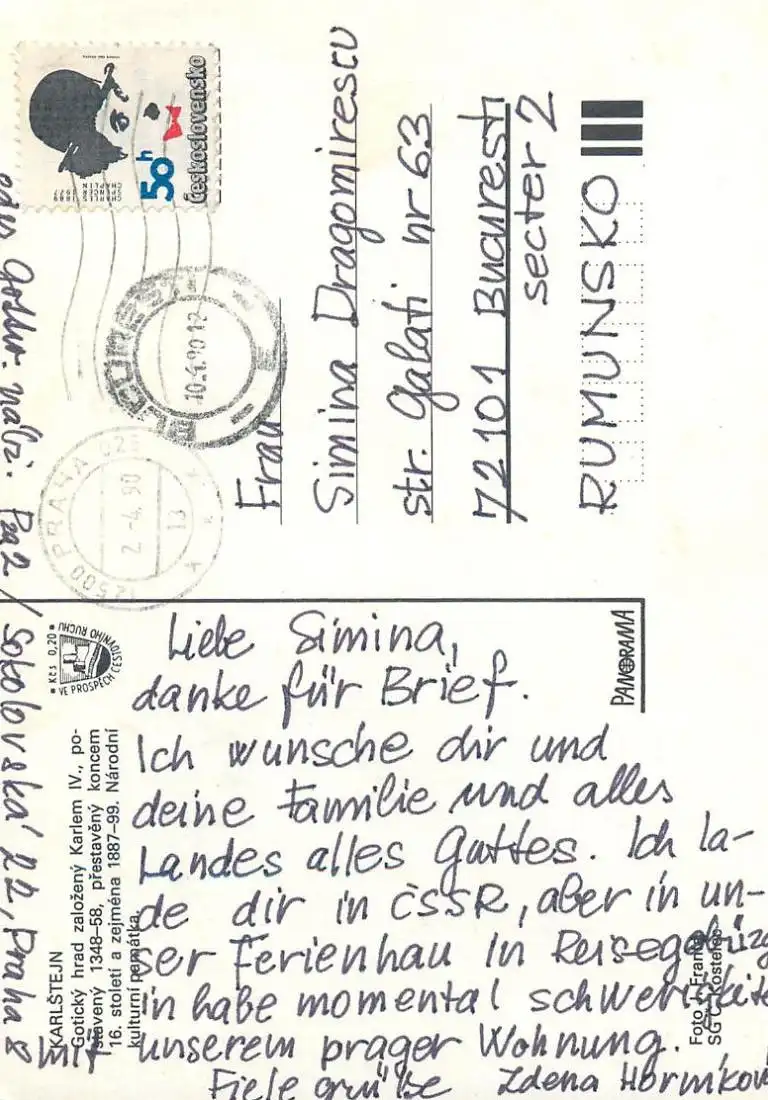 Československo
50h
CHARLES
SPENCER
CHAPLIN
1889
1977
BUCUREȘTI
10.4.90 12
12500 PRAHA 025
2.-4.90
13
Frau
Simina Dragomirescu
str. Galati nr 63
72101 Bucuresti
secter 2
RUMUNSKO
PANORAMA
Kčs 0,20
VE PROSPĚCH CESTOVNÍHO RUCHU
KARLŠTEJN
Gotický hrad založený Karlem IV., po-
stavený 1348–58, přestavěný koncem
16. století a zejména 1887–99. Národní
kulturní památka
Foto Franke
SG Kostelec
Liebe Simina,
danke für Brief.
Ich wunsche dir und
deine Familie und alles
Landes alles Guttes. Ich la-
de dir in ČSSR, aber in un-
ser Ferienhau in Reisegebürg
in habe momental schwerikeite
mit unserem prager Wohnung.
Fiele grüße Zdena Horníkov
Sokolovská 22, Praha 8